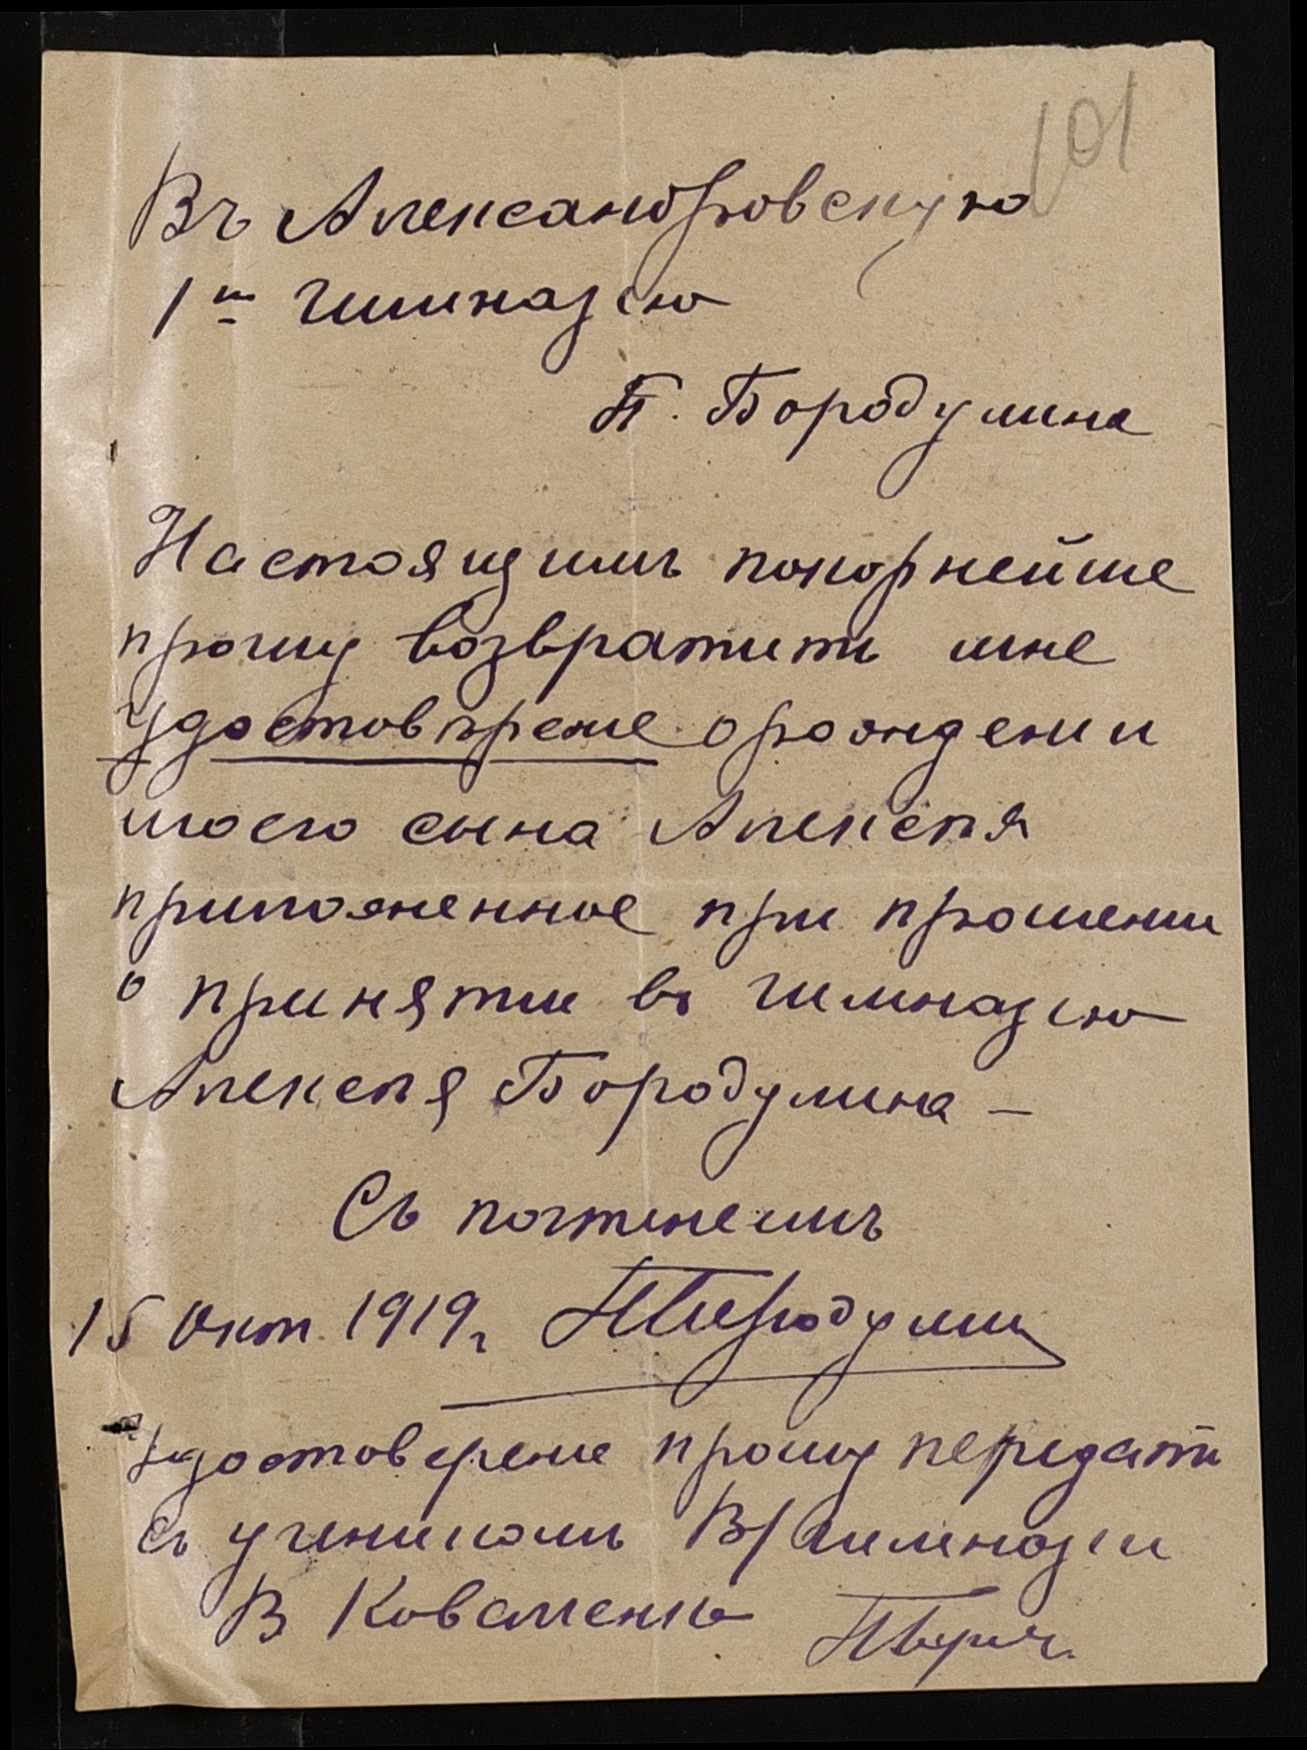 101
Въ Александровскую
1ю гимназію
П. Бородулина
Настоящимъ покорнейше
прошу возвратить мне
удостовѣреніе о рождении
моего сына Алексѣя
приложенное при прошении
о принятии въ гимназію
Алексѣя Бородулина —
Съ почтенiемъ
15 Окт. 1919 г. ПБородулин
Удостоверение прошу передать
съ ученикомъ гимназии
В Коваленко